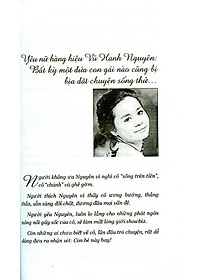 Yêu nữ hàng hiệu Vũ Hạnh Nguyên:
Bất kỳ một đứa con gái nào cũng bị
bịa đặt chuyện sống thử...
Người không ưa Nguyên vì nghĩ cô "sống trên tiền",
cô "chảnh" và ghê gớm.
Người thích Nguyên vì thấy cô ương bướng, thẳng
thắn, sẵn sàng đối chất, đương đầu mọi vấn đề.
Người yêu Nguyên, luôn lo lắng cho những phát ngôn
nóng nổi gây sốc của cô, sẽ làm mất lòng giới showbiz.
Còn những ai chưa biết về cô, lần đầu trò chuyện, rất dễ
dàng đưa ra nhận xét: Con bé này hay!